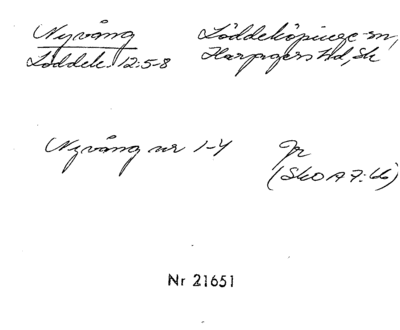 Nyvång Löddeköpinge sn,
Löddek. 12:5-8 Harjagers hd, Sk
Nyvång nr 1-4 jr
(SkO A 7:66)
Nr 21651